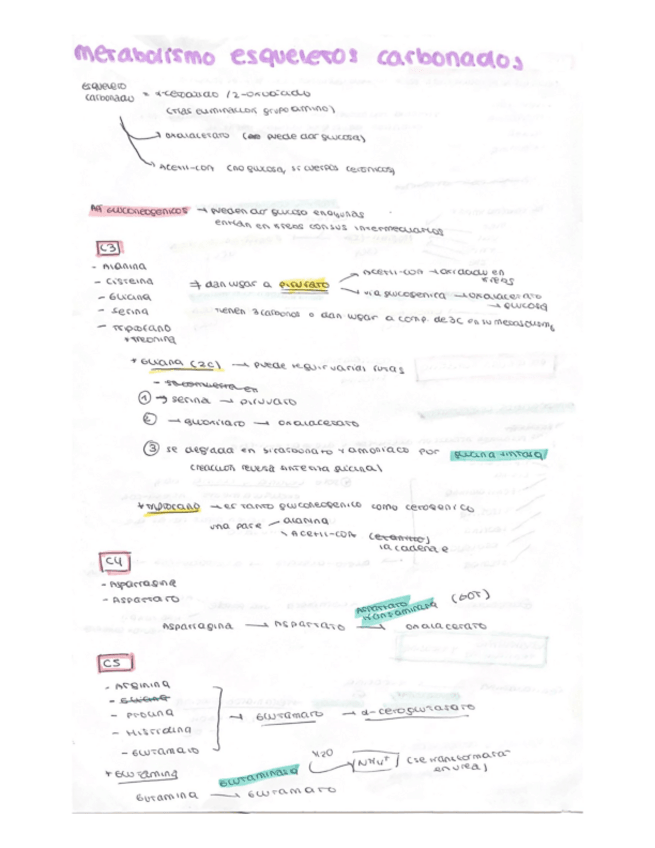 metabolismo esqueletos carbonados
esqueleto
carbonado = cetoácido / 2-oxoácido
(tras eliminación grupo amino)
oxalacetato (puede dar glucosa)
Acetil-coA (no glucosa, sí cuerpos cetónicos)
AA gluconeogénicos → pueden dar glucosa en ayunas
entran en krebs con sus intermediarios
C3
- Alanina
- Cisteina
- Glicina
- Serina
- Triptófano
+ treonina
⇒ dan lugar a piruvato
Acetil-coA → oxidado en krebs
vía glucogénica → oxalacetato
→ glucosa
tienen 3 carbonos o dan lugar a comp. de 3C en su metabolismo
+ Glicina (2C) → puede seguir varias rutas
① → serina → piruvato
② → glioxilato → oxalacetato
③ se degrada en bicarbonato y amoniaco por glicina sintasa
(reacción reversa síntesis glicina)
+ triptófano → es tanto gluconeogénico como cetogénico
una parte alanina
Acetil-coA
la cadena
C4
- Asparragina
- Aspartato
Asparragina → Aspartato → oxalacetato
Aspartato transaminasa (GOT)
C5
- Arginina
- Glicina
- Prolina
- Histidina
- Glutamato
→ Glutamato → α-cetoglutarato
+ Glutamina
Glutaminasa
H2O
NH4+ (se transformará en urea)
Glutamina → Glutamato